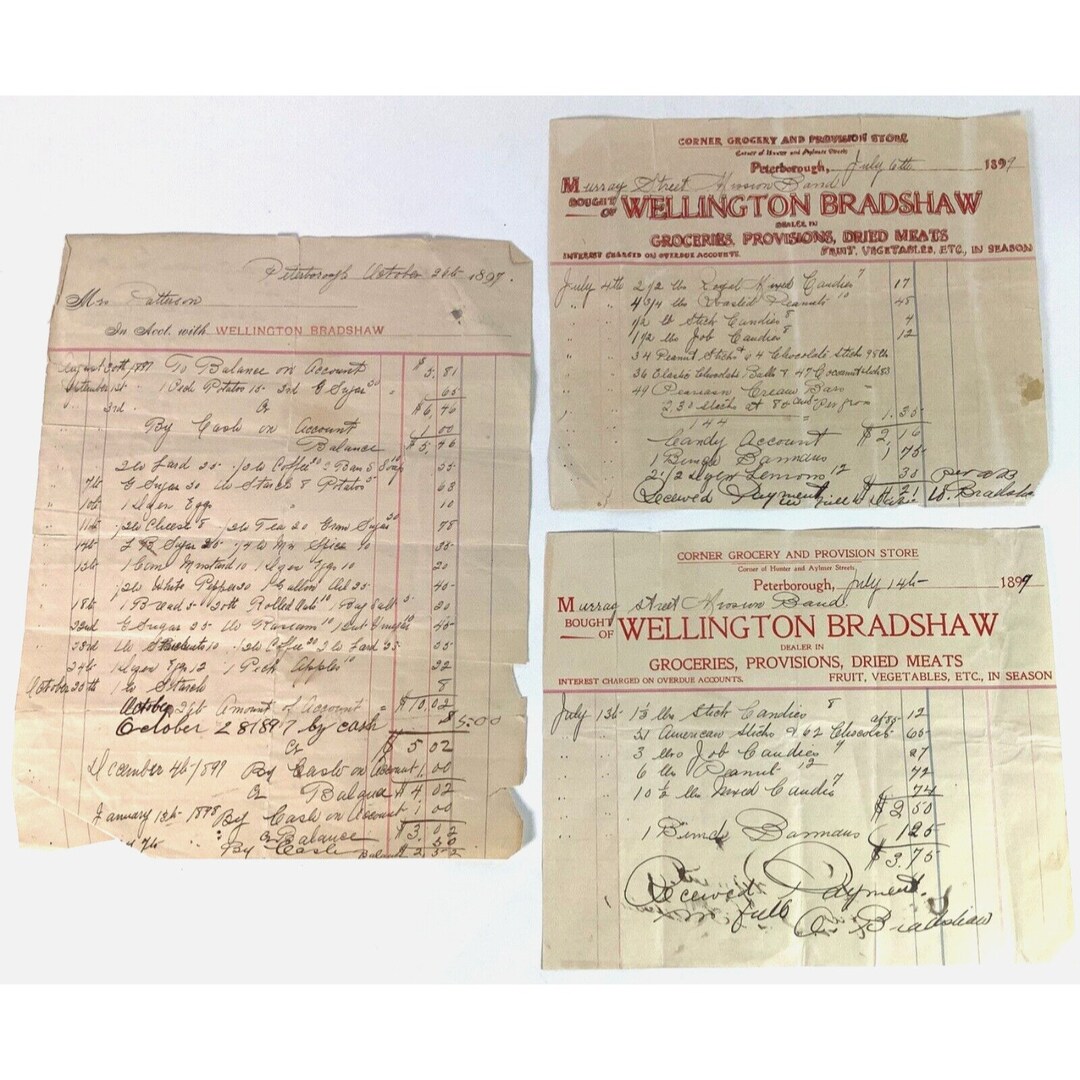 Peterborough October 26th 1897.
Mrs Patterson
In Acct. with WELLINGTON BRADSHAW
August 30th 1897 To Balance on Account $5.81
September 1st 1 Peck Potatos 15 3rd G Sugar 50 " 65
" 3rd. Cr $6,46
By Cash on Account 1 00
Balance $5,46
Lard 25 Coffee 20 2 Bars Soap 10 55
7th G Sugar 30 Starch 8 Potatos 63
10th 1 Dozen Eggs 10
11th Cheese 8 Tea 20 Gran Sugar 50 78
14th L B Sugar 25 Spice 10 35
15th 1 Can Mustard 10 1 Dozen Eggs 10 20
White Pepper 20 1 Gallon Oil 25 45
18th 1 Bread 5 Rolled Oats 10 1 Bag Salt 5 20
22nd G Sugar 25 10 45
23rd 10 Coffee 20 Lard 25 55
24th 1 Dozen Eggs 12 1 Peck Apples 10 22
October 20th 1 lb Starch 8
October 26 Amount of Account " $10,02
October 28 1897 by cash $5.00
Cr $5 02
December 4th 1897 By Cash on Account 1,00
Cr Balance $4 02
January 1st 1898 By Cash on Account 1 00
Cr Balance $3,02
7th By Cash 50
Balance $2,52
CORNER GROCERY AND PROVISION STORE
Corner of Hunter and Aylmer Streets
Peterborough, July 6th 1899
Murray Street Mission Band
BOUGHT OF WELLINGTON BRADSHAW
DEALER IN
GROCERIES, PROVISIONS, DRIED MEATS
INTEREST CHARGED ON OVERDUE ACCOUNTS. FRUIT, VEGETABLES, ETC., IN SEASON
July 4th 2 1/2 lbs Royal Mixed Candies 7 17
" " 4 3/4 lbs Roasted Peanuts 10 45
1/2 lb Stick Candies 8 4
1 1/2 lbs Job Candies 8 12
34 Peanut Sticks & 4 Chocolate sticks
36 Elastic Chocolate Balls & 47 Cocoanut
49 Cream Bars
230 sticks at 84
144 1.35
Candy Account $2,16
1 Bunch Bannans 1 75
2 1/2 Dozen Lemons 12 30
Received Payment in full $4.21 per W B
W. Bradshaw
CORNER GROCERY AND PROVISION STORE
Corner of Hunter and Aylmer Streets,
Peterborough, July 14th 1899
Murray Street Mission Band
BOUGHT OF WELLINGTON BRADSHAW
DEALER IN
GROCERIES, PROVISIONS, DRIED MEATS
INTEREST CHARGED ON OVERDUE ACCOUNTS. FRUIT, VEGETABLES, ETC., IN SEASON
July 13th 1 1/2 lbs Stick Candies 8 12
51 American Sticks & 62 Chocolate 65
3 lbs Job Candies 9 27
6 lbs Peanut 12 72
10 1/2 lbs Mixed Candies 7 74
$2 50
1 Bunch Bannans 1 25
$3.75
Received Payment
in full W Bradshaw